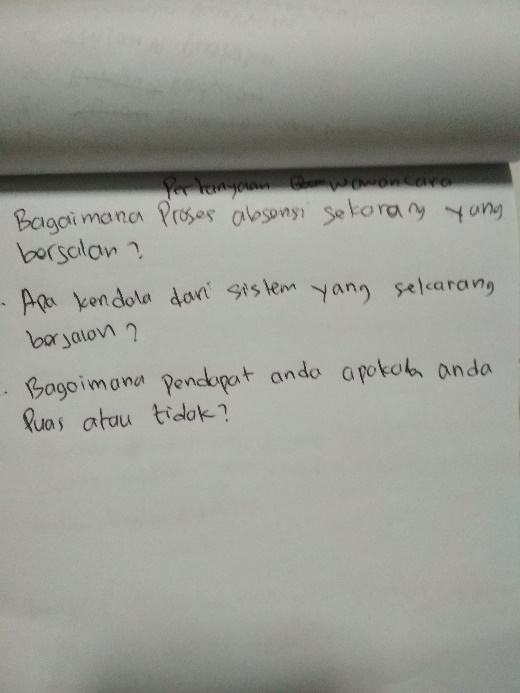 Pertanyaan wawancara
Bagaimana Proses absensi sekarang yang
berjalan?
. Apa kendala dari sistem yang sekarang
berjalan?
. Bagaimana Pendapat anda apakah anda
Puas atau tidak?